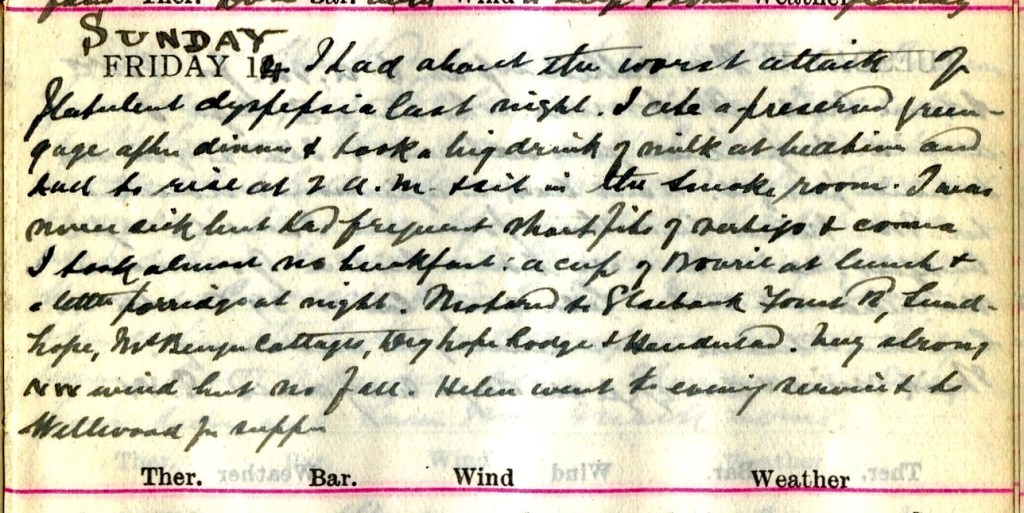 Ther. Bar. Wind Weather
SUNDAY
FRIDAY 14 I had about the worst attack of
flatulent dyspepsia last night. I ate a preserved green-
gage after dinner & took a big drink of milk at bedtime and
had to rise at 2 a.m. & sit in the smoke room. I was
never sick but had frequent short fits of vertigo & coma
I took almost no breakfast: a cup of Bovril at lunch &
a little porridge at night. Motored to Glebank Foun Rd, Lund-
hope, Mt Benger Cottages, Dryhope Lodge & Henderland. Very strong
NW wind but no fall. Helen went to evening service & to
Wellwood for supper
Ther. Bar. Wind Weather